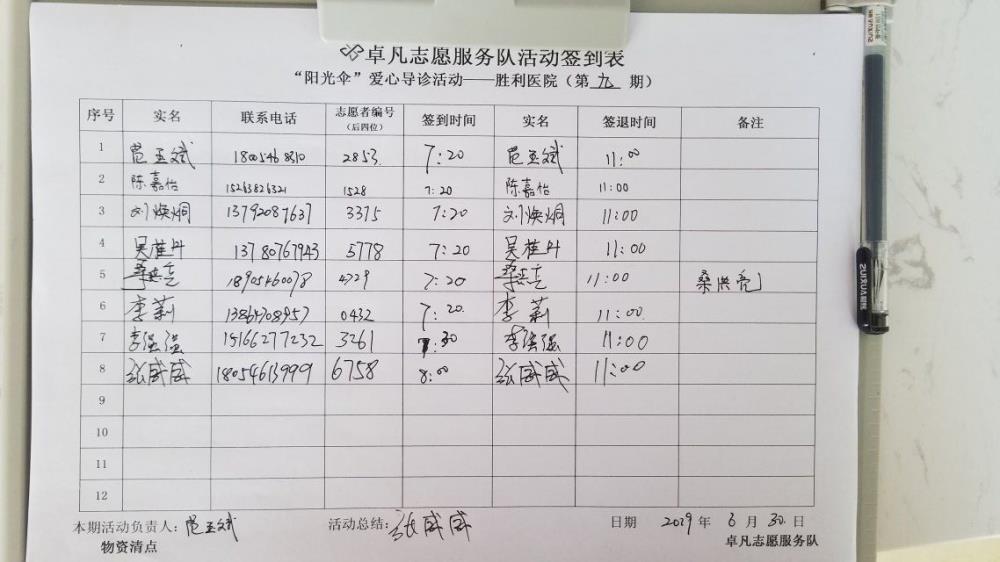 卓凡志愿服务队活动签到表
“阳光伞”爱心导诊活动——胜利医院（第 九 期）
序号 实名 联系电话 志愿者编号（后四位） 签到时间 实名 签退时间 备注
1 范玉斌 18005468310 2853 7:20 范玉斌 11:00
2 陈嘉怡 15263826321 1528 7:20 陈嘉怡 11:00
3 刘焕炯 13792087637 3375 7:20 刘焕炯 11:00
4 吴桂丹 13780767943 5778 7:20 吴桂丹 11:00
5 桑洪亮 18905460078 4729 7:20 桑洪亮 11:00 桑洪亮
6 李莉 13864708957 0432 7:20 李莉 11:00
7 李强强 15166277232 3261 7:30 李强强 11:00
8 张威威 18054613999 6758 8:00 张威威 11:00
9
10
11
12
本期活动负责人：范玉斌 活动总结：张威威 日期 2019 年 6 月 30 日
物资清点 卓凡志愿服务队